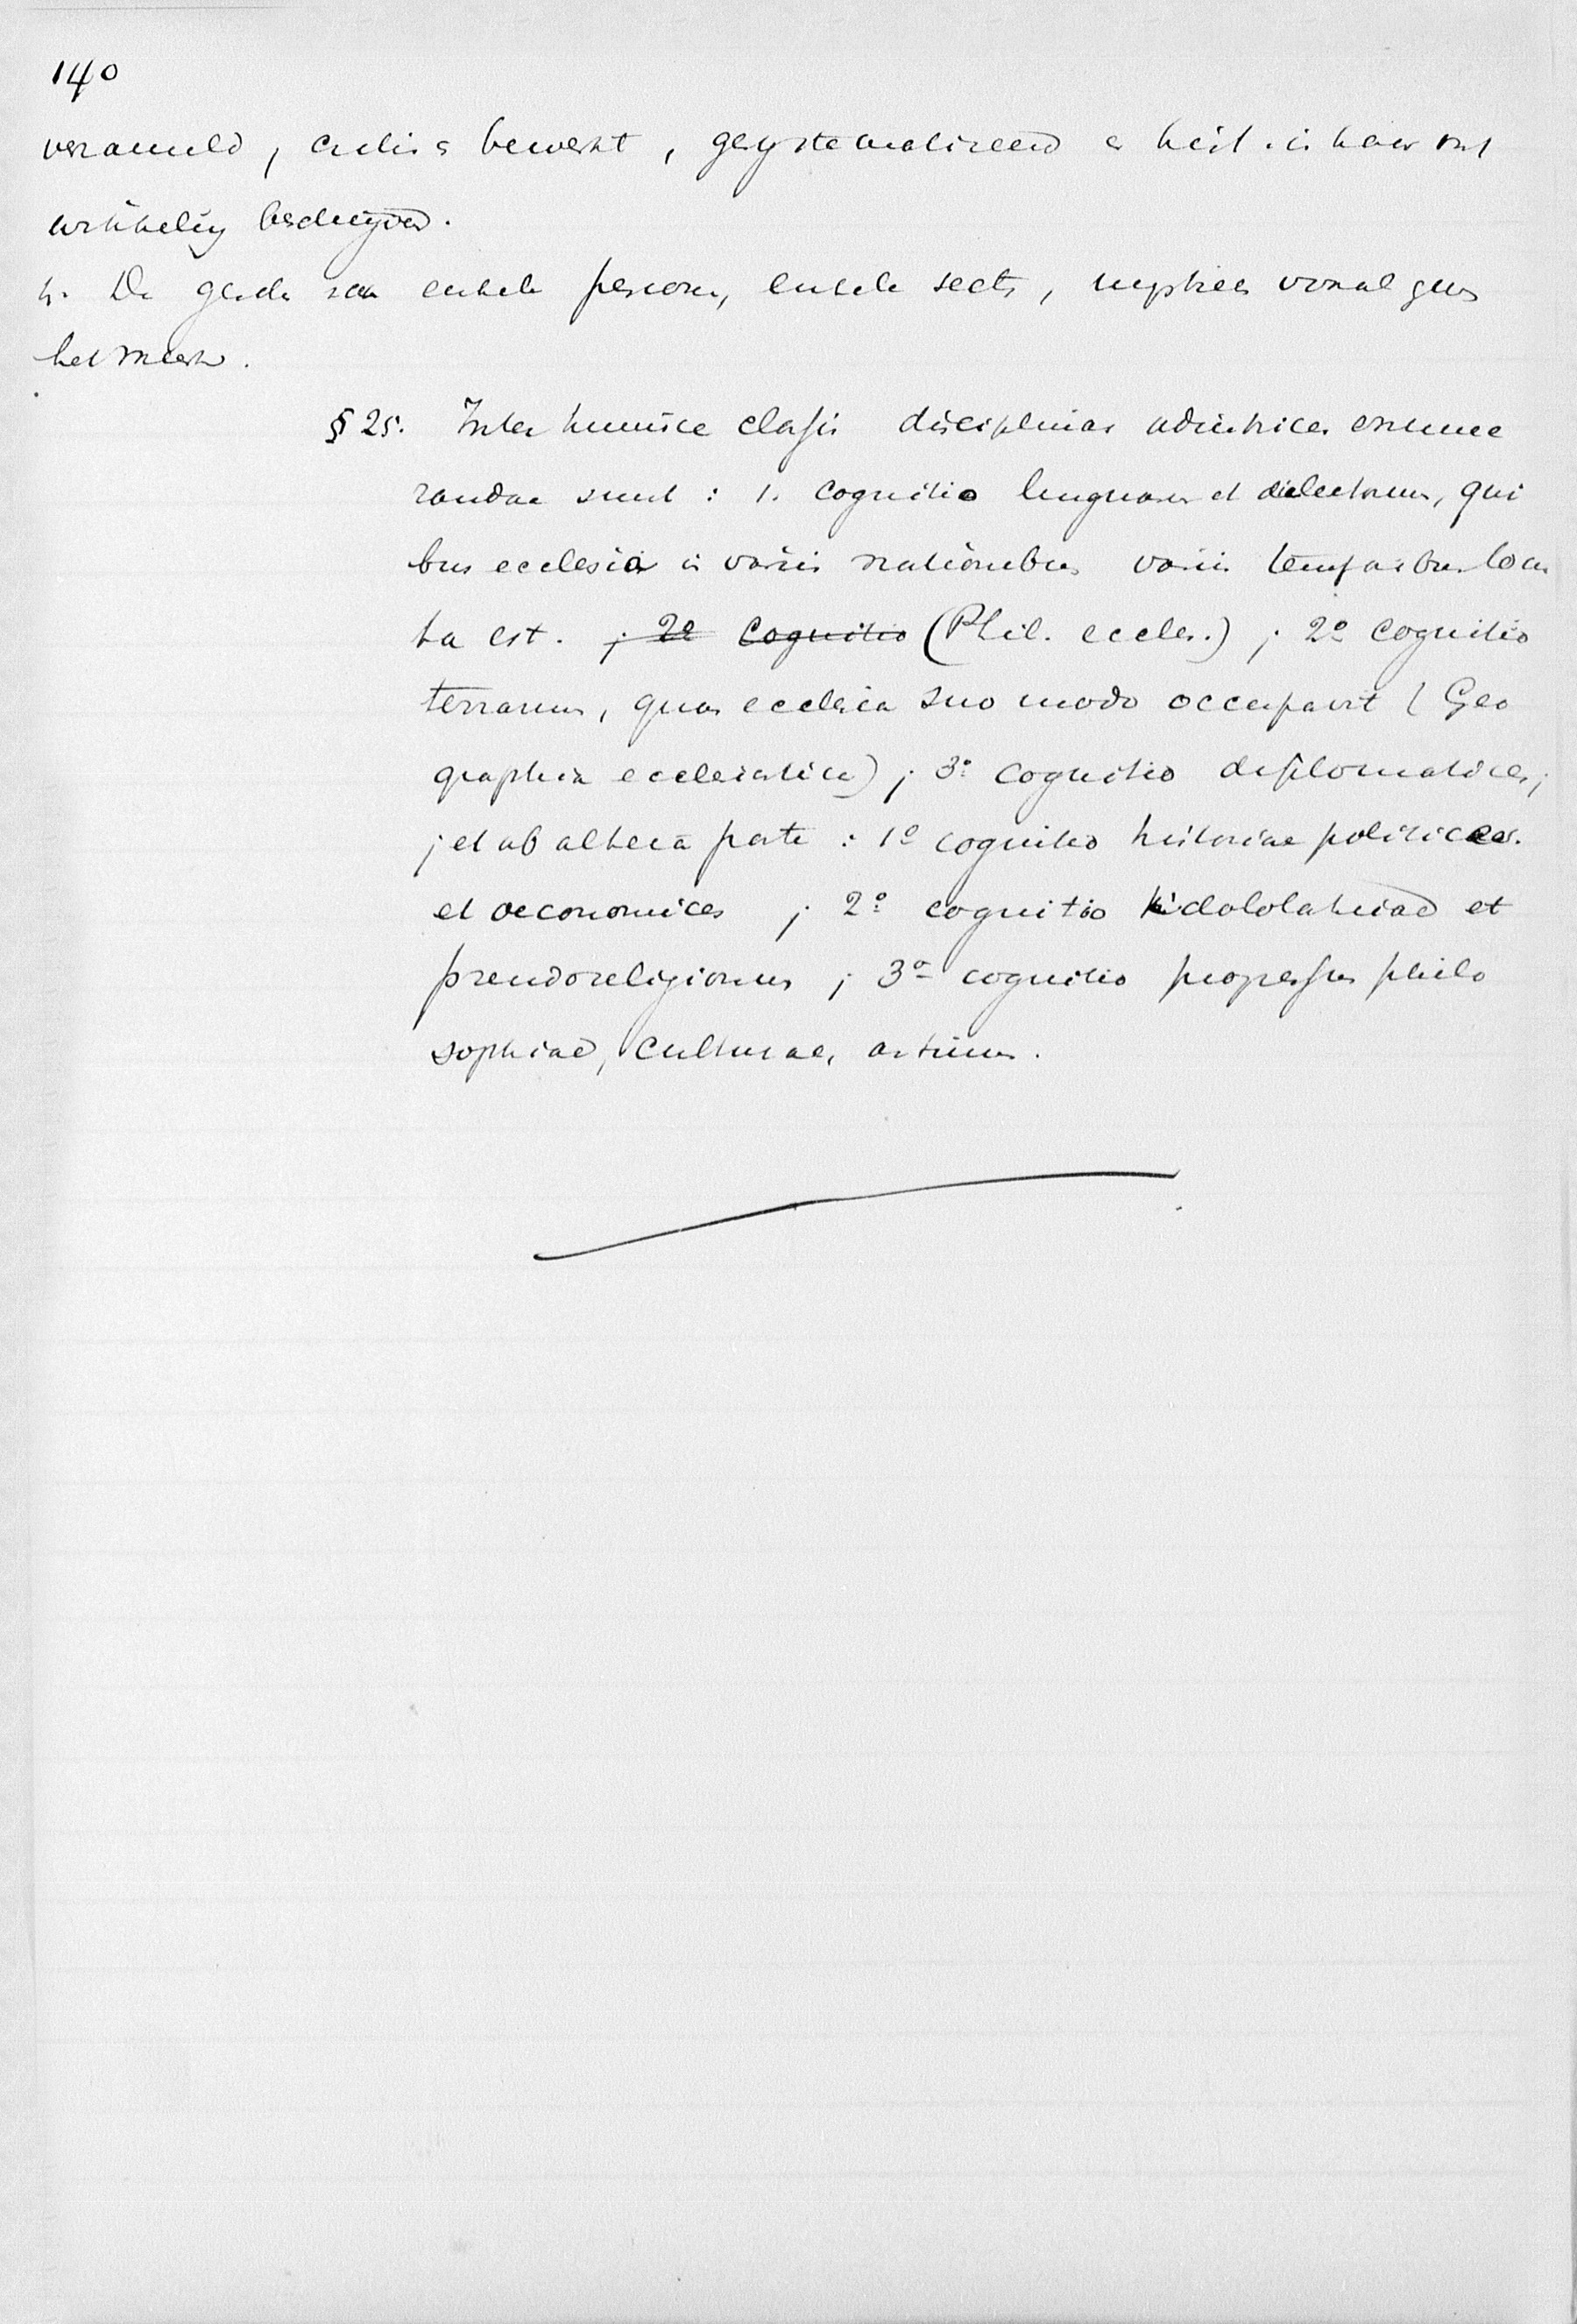 140
verzameld, critisch bewerkt, gesystematiseerd en hist. in haar ont
wikkeling beschreven.
4. De gesch. van enkele personen, enkele secten, mystieken vooral geus
het meest.
§ 25. Inter hujusce classis disciplinas adiutrices enume
randae sunt : 1. cognitio linguarum et dialectorum, qui
bus ecclesia in variis nationibus variis temporibus locu
ta est. ; 2o Cognitio (Phil. eccles.) ; 2o cognitio
terrarum, quas ecclesia suo modo occupavit (Geo
graphia ecclesiastica) ; 3o cognitio diplomatices ;
; et ab altera parte : 1o cognitio historiae politicae
et oeconomices ; 2o cognitio idololatriae et
pseudoreligionum ; 3o cognitio progressus philo
sophiae, culturae, artium.